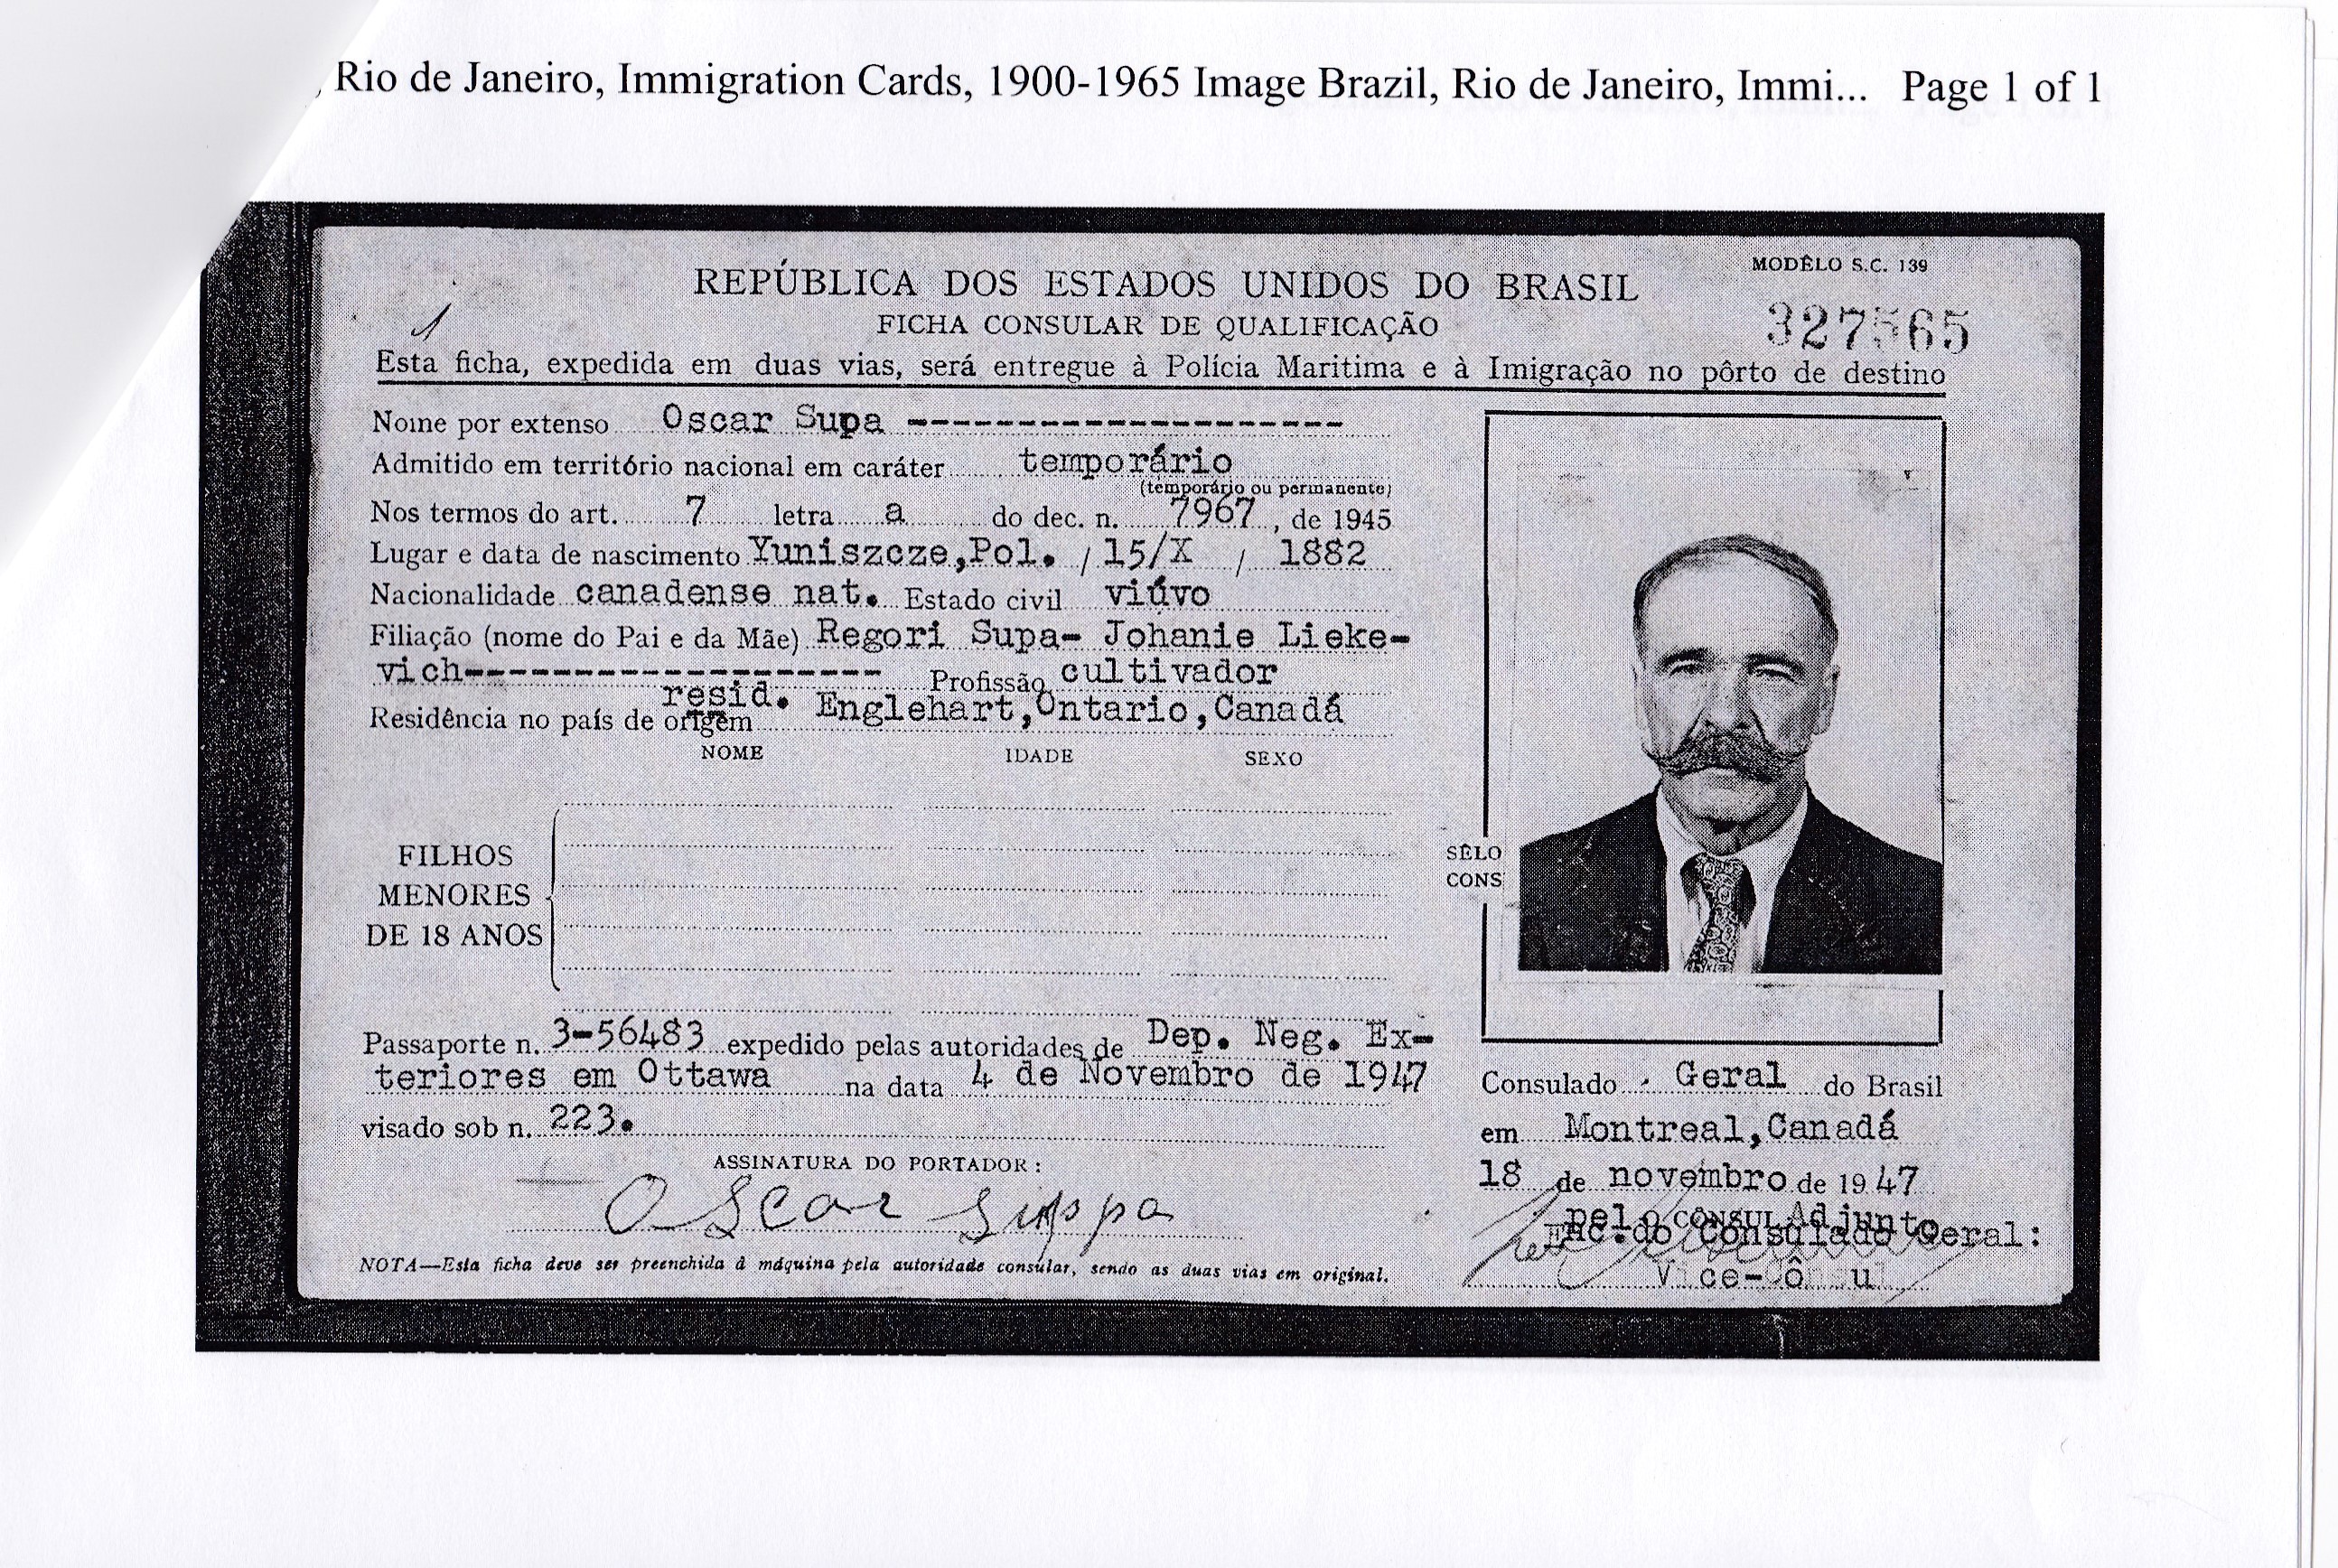 , Rio de Janeiro, Immigration Cards, 1900-1965 Image Brazil, Rio de Janeiro, Immi... Page 1 of 1
MODÊLO S.C. 139
REPÚBLICA DOS ESTADOS UNIDOS DO BRASIL
327565
FICHA CONSULAR DE QUALIFICAÇÃO
1
Esta ficha, expedida em duas vias, será entregue à Polícia Maritima e à Imigração no pôrto de destino
Nome por extenso Oscar Supa --------------------
Admitido em território nacional em caráter temporário
(temporário ou permanente)
Nos termos do art. 7 letra a do dec. n. 7967, de 1945
Lugar e data de nascimento Yuniszcze,Pol. / 15/X / 1882
Nacionalidade canadense nat. Estado civil viúvo
Filiação (nome do Pai e da Mãe) Regori Supa- Johanie Lieke-
vich------------------- Profissão cultivador
resid.
Residência no país de origem Englehart,Ontario,Canadá
NOME IDADE SEXO
FILHOS
MENORES
DE 18 ANOS
SÊLO
CONS
Passaporte n. 3-56483 expedido pelas autoridades de Dep. Neg. Ex-
teriores em Ottawa na data 4 de Novembro de 1947
visado sob n. 223.
ASSINATURA DO PORTADOR:
Oscar Suppa
NOTA—Esta ficha deve ser preenchida à máquina pela autoridade consular, sendo as duas vias em original.
Consulado Geral do Brasil
em Montreal,Canadá
18 de novembro de 1947
pelo CÔNSUL Adjunto
Enc.do Consulado Geral: